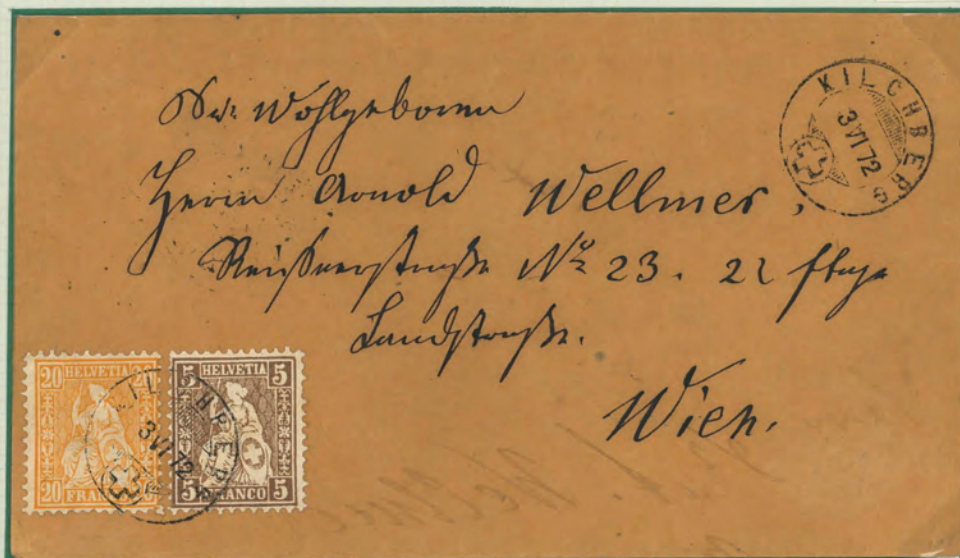 Sr. Wohlgeboren
Herrn Arnold Wellmer,
Reisnerstraße No 23. 22 Stege
Landstraße.
Wien.
KILCHBERG
3 VI 72
20 HELVETIA 20
20 FRANCO 20
5 HELVETIA 5
5 FRANCO 5
KILCHBERG
3 VI 72